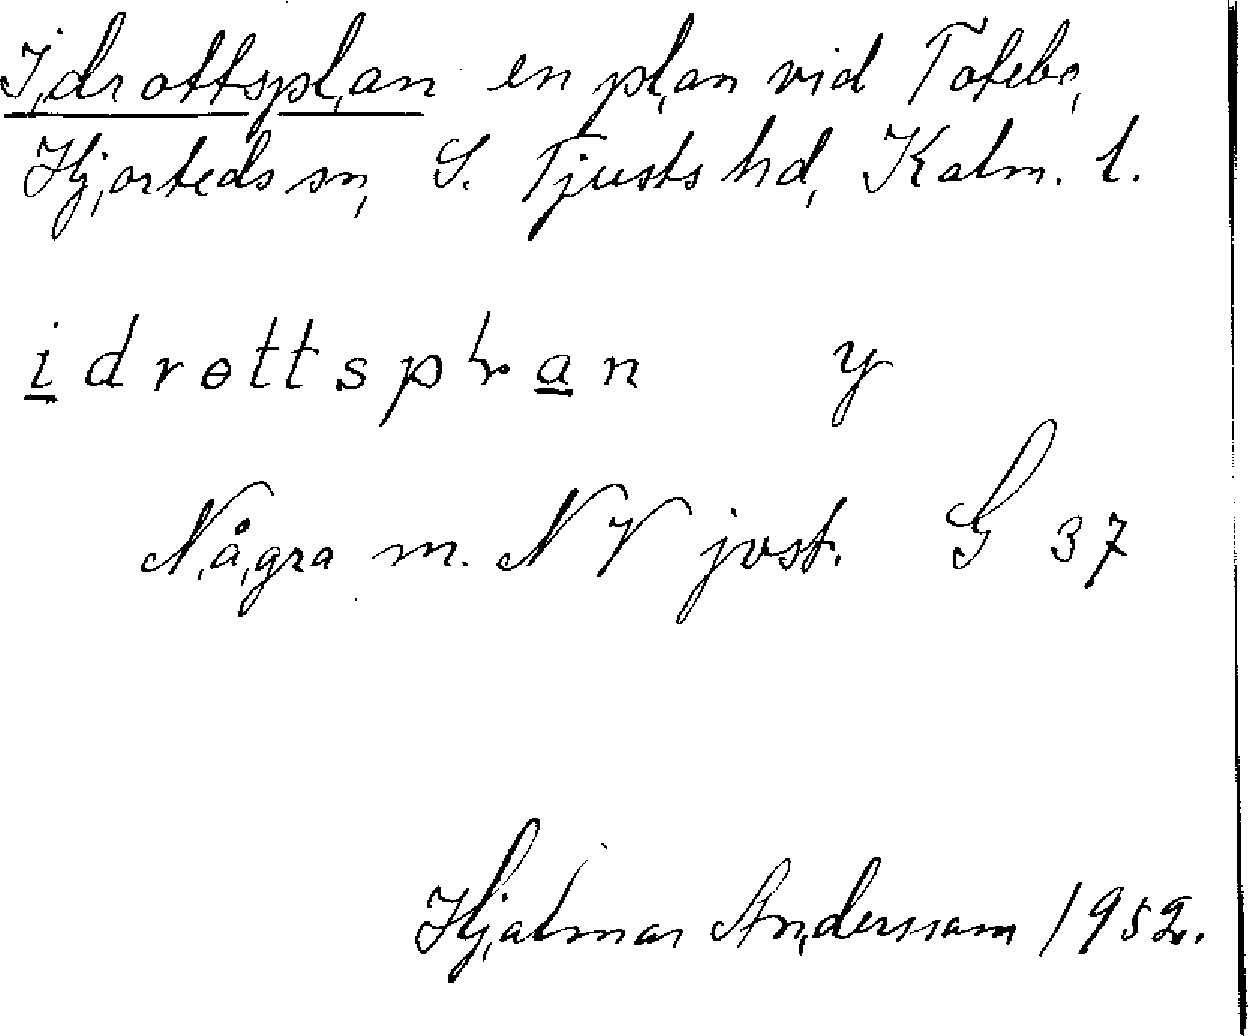 Idrottsplan en plan vid Totebo,
Hjorteds sn, S. Tjusts hd, Kalm. l.
idrɵttsplan y
Några m. NV jvst. G 37
Hjalmar Andersson 1952.